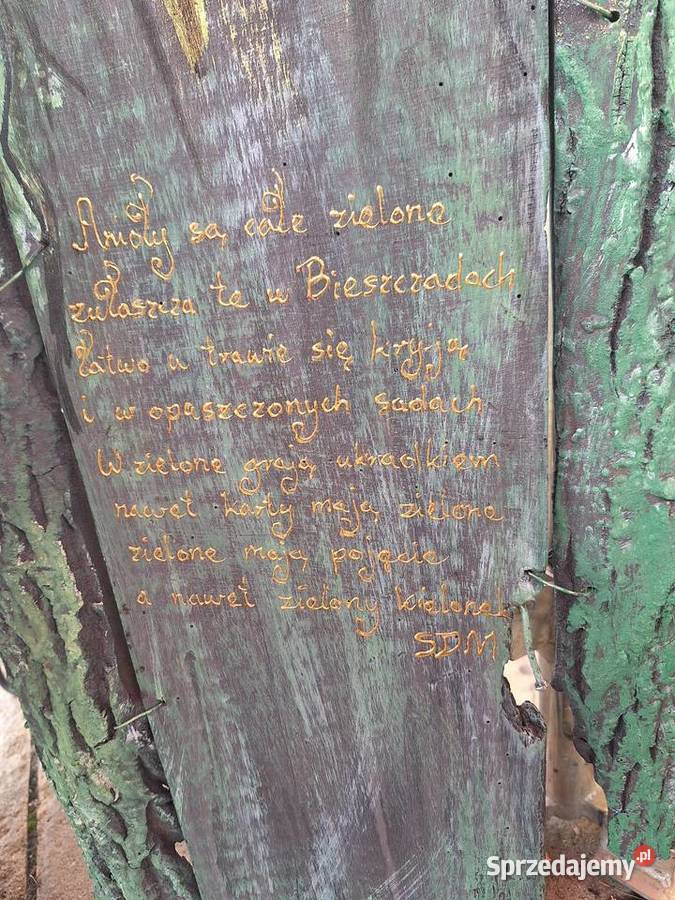 Anioły są całe zielone
zwłaszcza te w Bieszczadach
Łatwo w trawie się kryją
i w opaszczonych sadach
W zielone grają ukradkiem
nawet karty mają zielone
zielone mają pojęcie
a nawet zielony kielonek
SDM
Sprzedajemy.pl